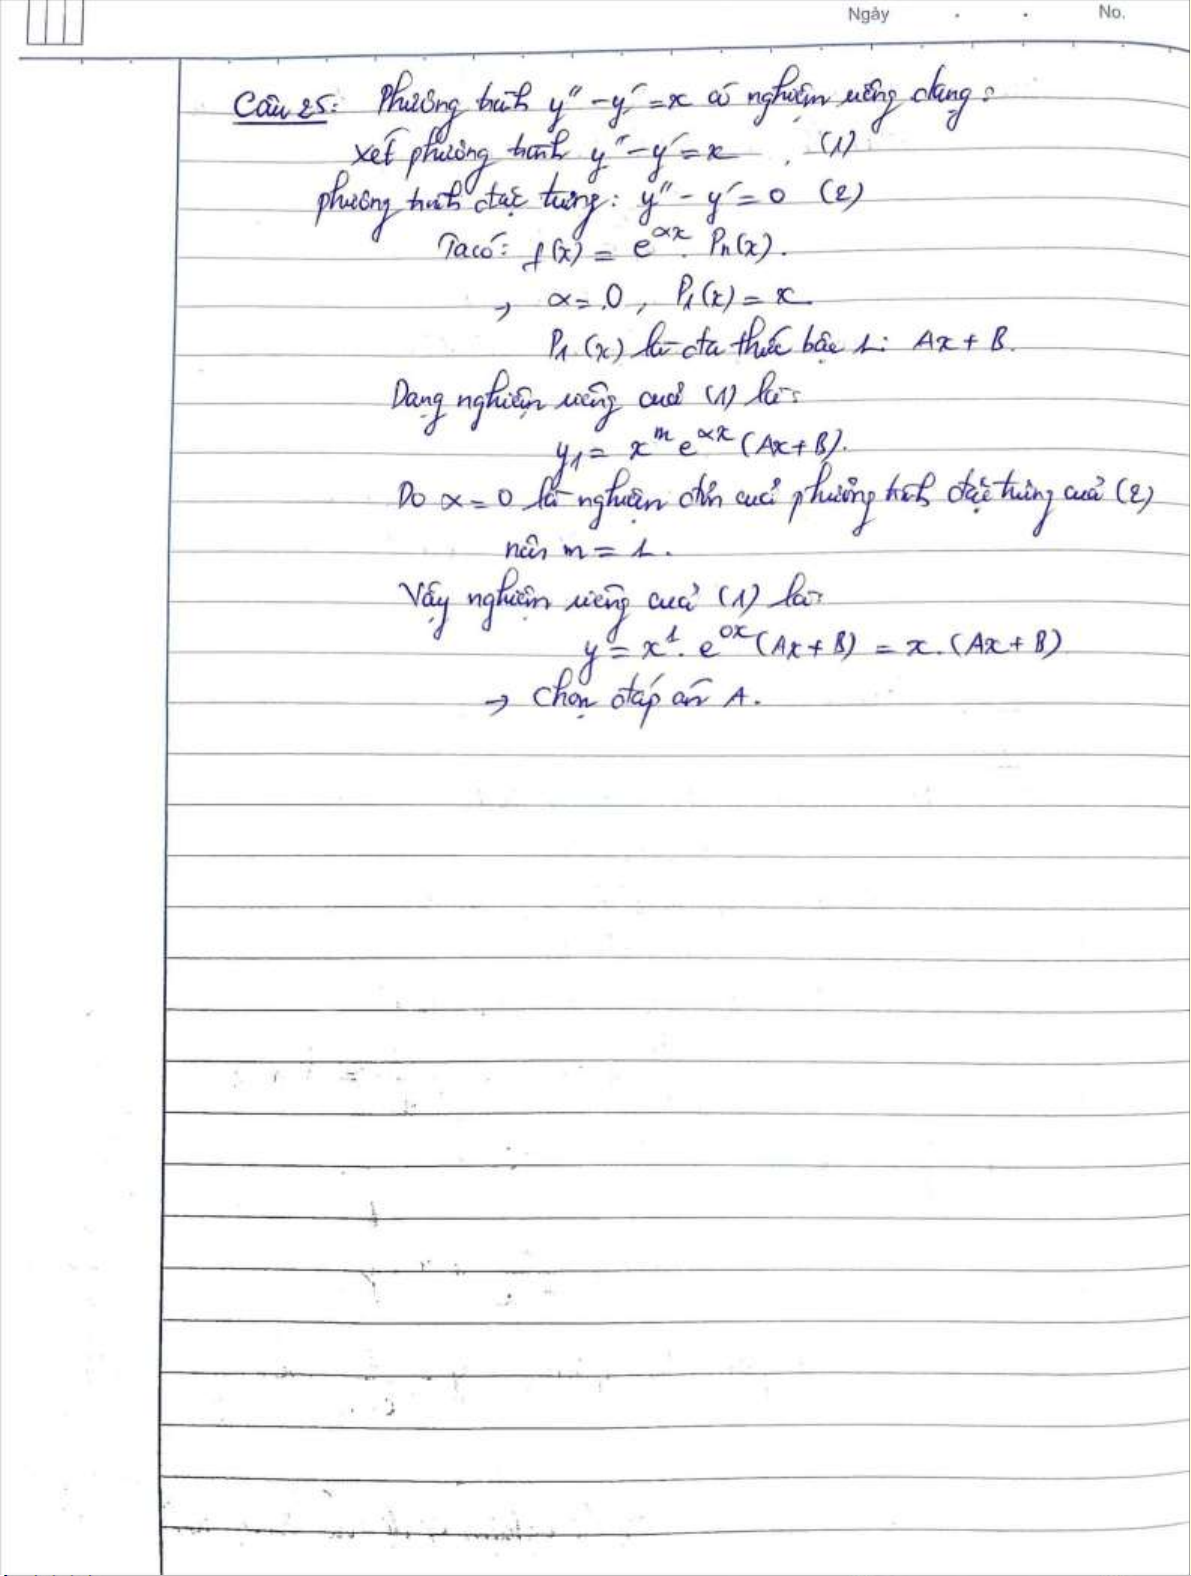 Ngày . . No.
Câu 25: Phương trình y'' - y' = x có nghiệm riêng dạng:
Xét phương trình y'' - y' = x . (1)
phương trình đặc trưng: y'' - y' = 0 (2)
Ta có: f(x) = e^{αx}. Pn(x).
→ α = 0, P₁(x) = x
P₁(x) là đa thức bậc 1: Ax + B.
Dạng nghiệm riêng của (1) là:
y₁ = x^m e^{αx} (Ax + B).
Do α = 0 là nghiệm đơn của phương trình đặc trưng của (2)
nên m = 1.
Vậy nghiệm riêng của (1) là:
y = x¹. e^{0x} (Ax + B) = x. (Ax + B)
→ chọn đáp án A.